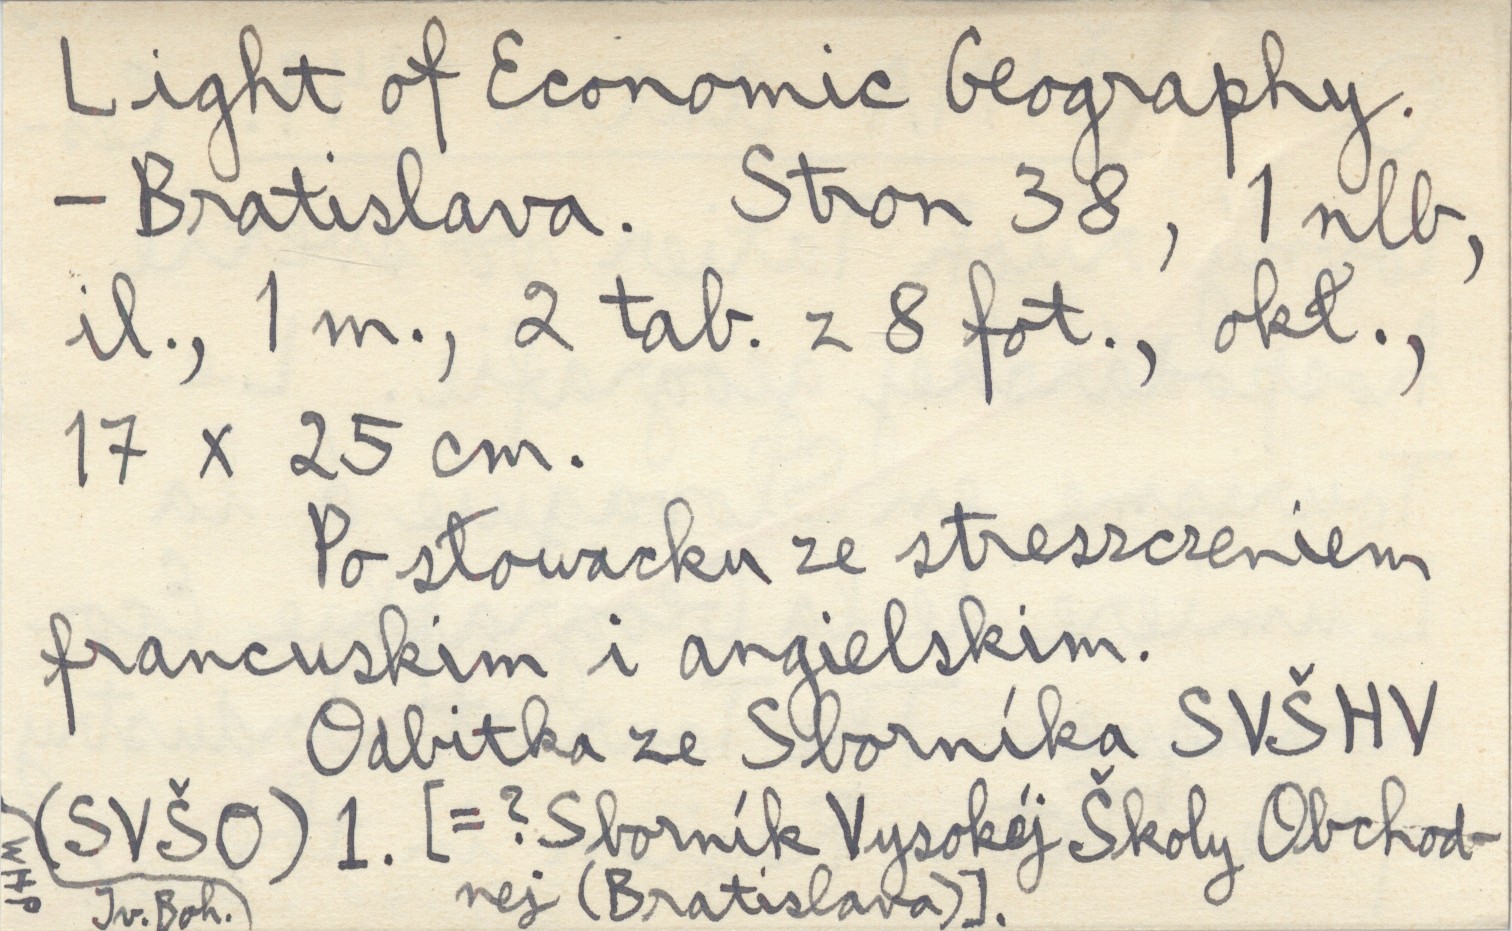 Light of Economic Geography.
– Bratislava. Stron 38, 1 nlb,
il., 1 m., 2 tab. z 8 fot., okł.,
17 x 25 cm.
Po słowacku ze streszczeniem
francuskim i angielskim.
Odbitka ze Sborníka SVŠHV
(SVŠO) 1. [=? Sborník Vysokéj Školy Obchod-
nej (Bratislava)].
Iv. Boh.